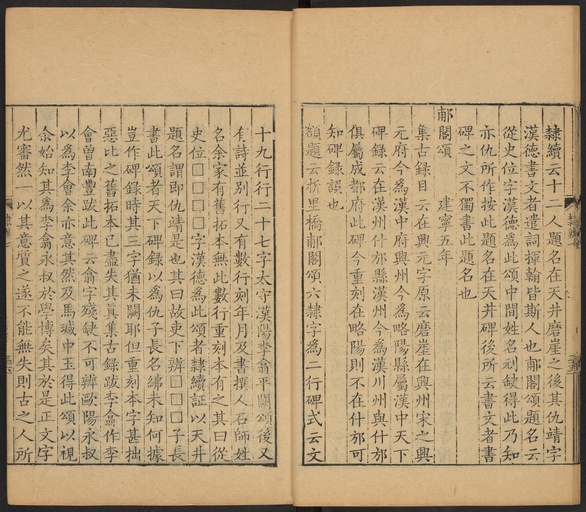 隸續云十二人題名在天井磨崖之後其仇靖字
漢德書文者遣詞揮翰皆斯人也郙閣頌題名云
從史位字漢德為此頌中間姓名刓缺得此乃知
亦仇所作按此題名在天井碑後所云書文者書
碑之文不獨書此題名也
郙閣頌 建寧五年
集古錄目云在興元字原云磨崖在興州宋之興
元府今為漢中府興州今為略陽縣屬漢中天下
碑錄云在漢州什邡縣漢州今為漢川州與什邡
俱屬成都府此碑今重刻在略陽則不在什邡可
知碑錄誤也
額題云析里橋郙閣頌六隸字為二行碑式云文
十九行行二十七字太守漢陽李翕平闕頌後又
有詩並別行又有數行刻年月及書撰人石師姓
名余家有舊拓本無此數行重刻本有之其曰從
史位□□□□字漢德為此頌者隸續証以天井
題名謂即仇靖是也其曰故吏下辨□□□子長
書此頌者天下碑錄以為仇子長名紼未知何據
豈作碑錄時其三字猶未闕耶但重刻本字甚拙
惡比之舊拓本已盡失其真集古錄跋李翕作李
會曾南豐跋此碑云翕字殘缺不可辨歐陽永叔
以為李會余亦意其然及馬瑊中玉得此頌以視
余始知其為李翕永叔於學博矣其於是正文字
尤審然一以其意質之遂不能無失則古之人所